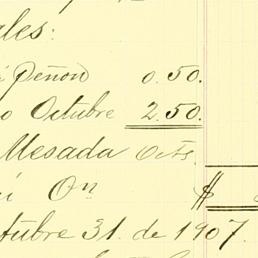 ales:
i Peñon 0.50.
o Octubre 2.50.
Mesada Octe
i On $
tubre 31. de 1907.